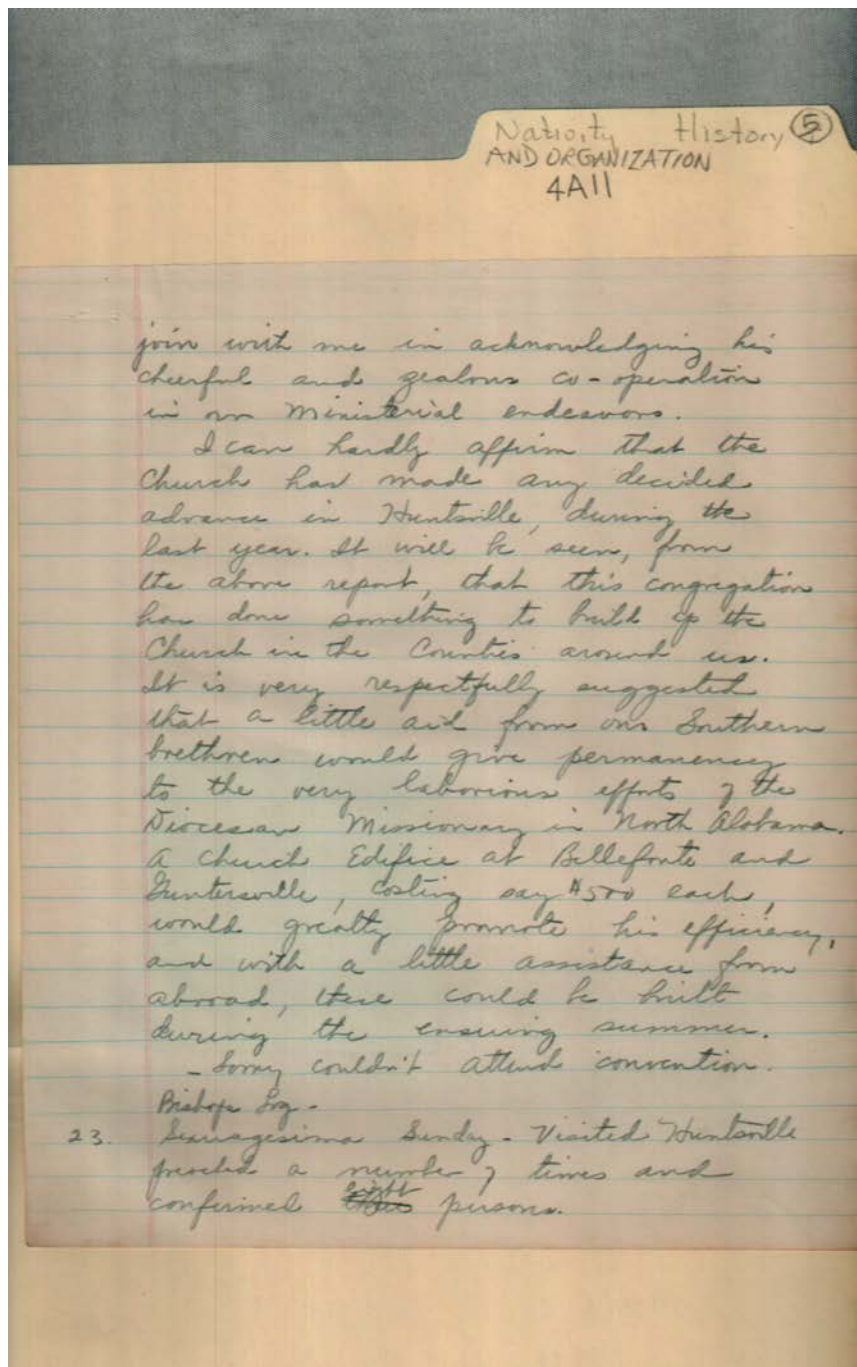 Nativity History 5
AND ORGANIZATION
4A11
join with me in acknowledging his
cheerful and zealous co-operation
in our Ministerial endeavors.
I can hardly affirm that the
Church has made any decided
advance in Huntsville, during the
last year. It will be seen, from
the above report, that this congregation
has done something to build up the
Church in the Counties around us.
It is very respectfully suggested
that a little aid from our Southern
brethren would give permanency
to the very laborious efforts of the
Diocesan Missionary in North Alabama.
A Church Edifice at Bellefonte and
Guntersville, costing say $500 each,
would greatly promote his efficiency,
and with a little assistance from
abroad, these could be built
during the ensuing summer.
- Sorry couldn't attend convention.
Bishops Log -
23. Sexuagesima Sunday - Visited Huntsville
preached a number of times and
confirmed eight persons.